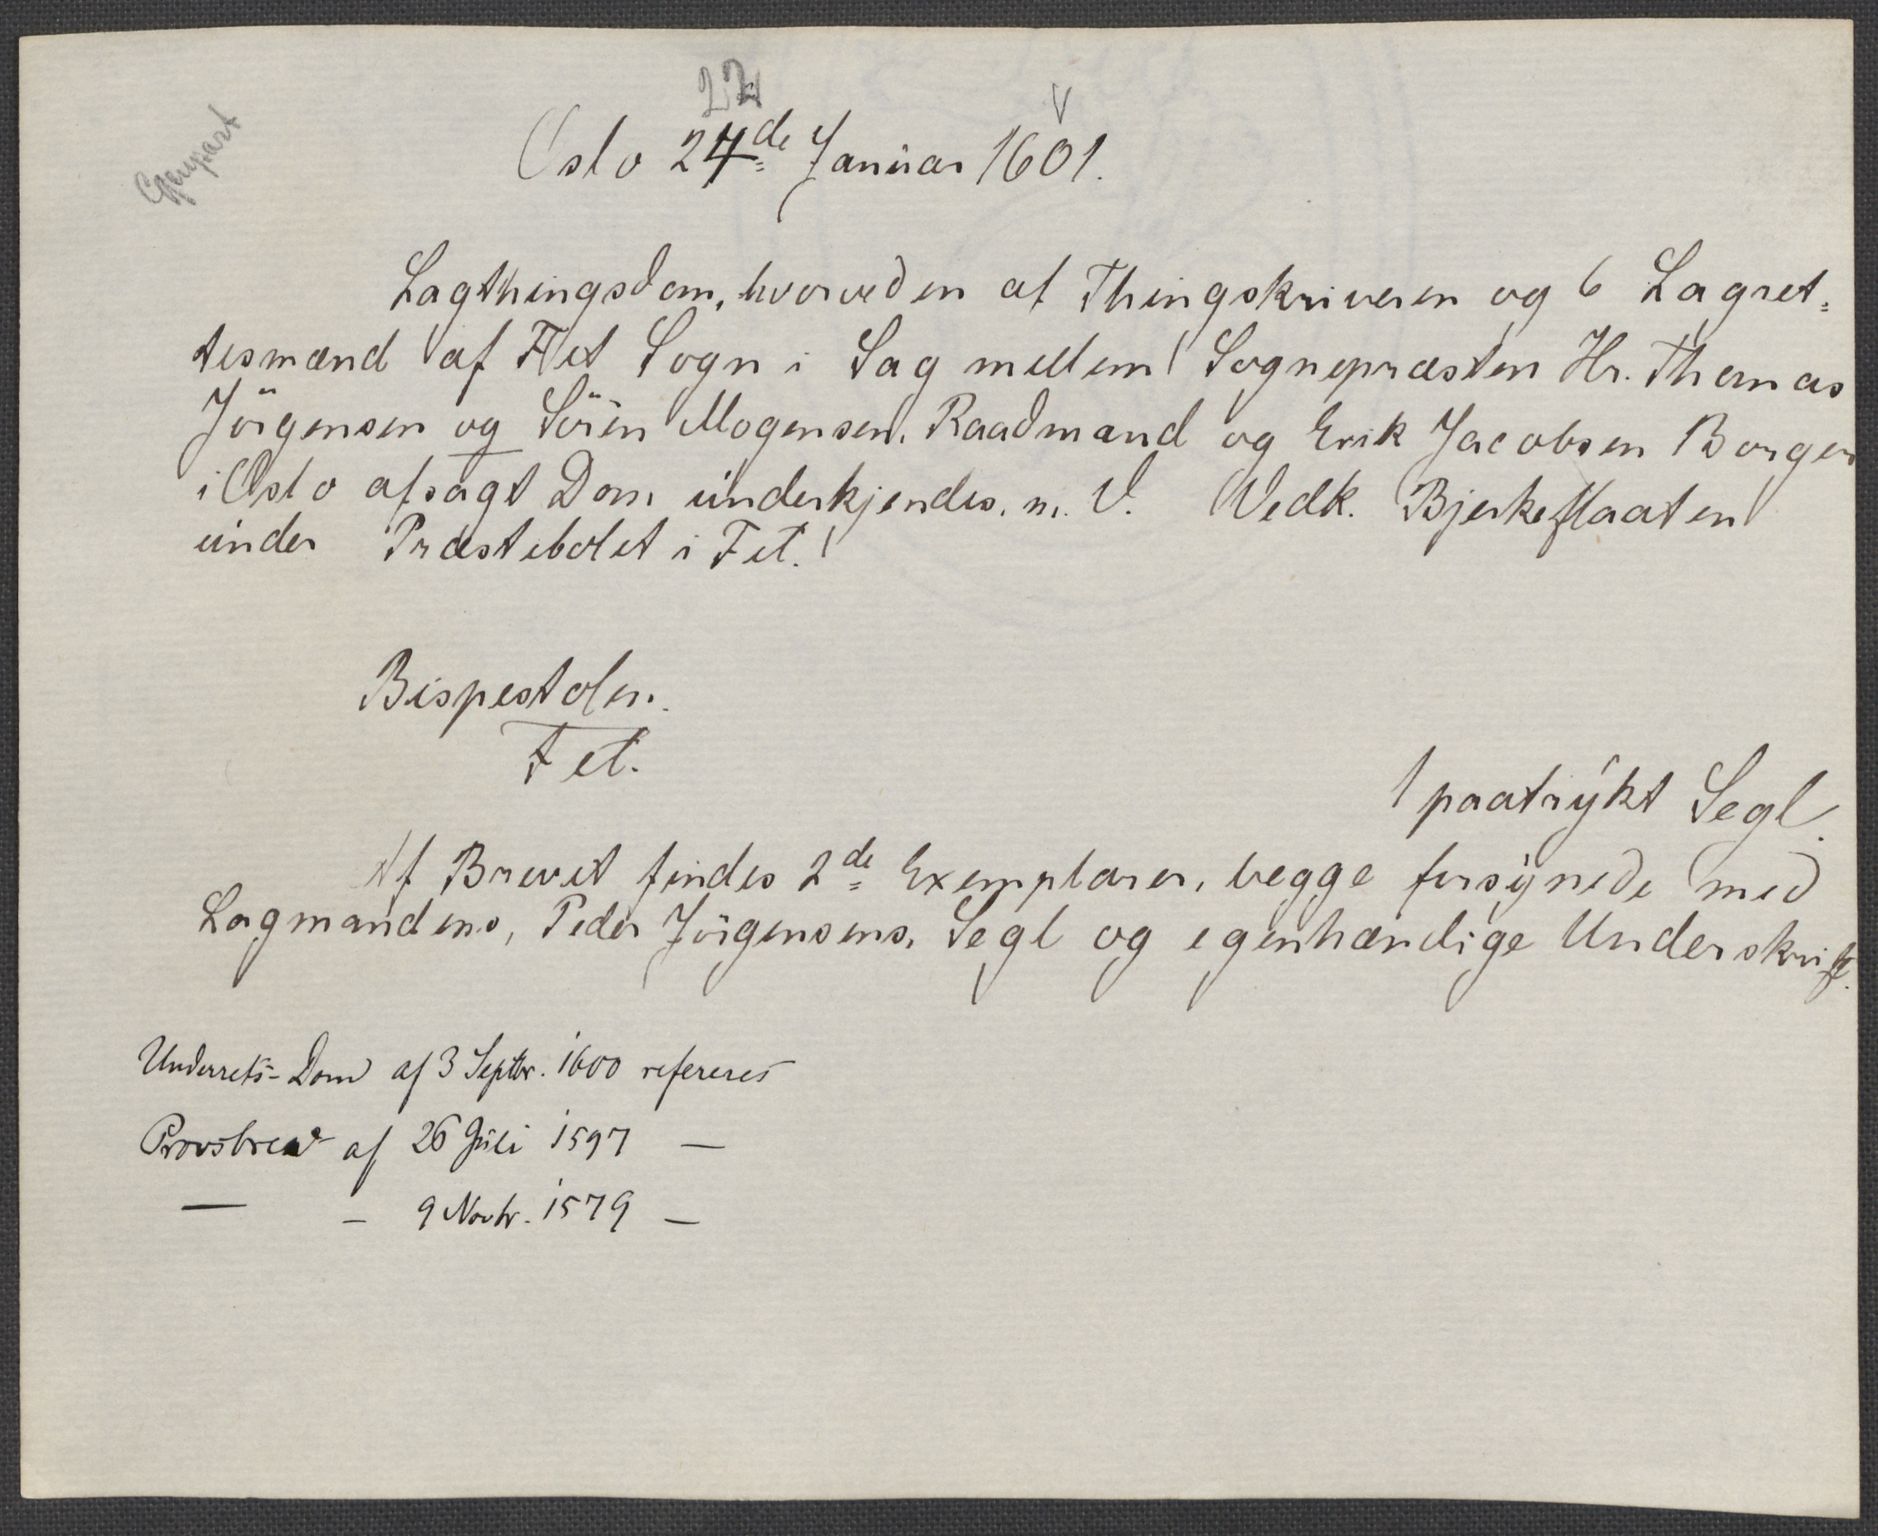 Gjenpart
22
Oslo 24de Januar 1601.
Lagthingsdom, hvorved en af Thingskriveren og 6 Lagret=
tesmænd af Fet Sogn i Sag mellem Sognepræsten Hr. Thomas
Jörgensen og Sören Mogensen, Raadmand og Erik Jacobsen Borger
i Oslo afsagt Dom underkjendes. m. V. Vedk. Bjerkeflaaten
under Præstebolet i Fet.
Bispestolen.
Fet.
1 paatrykt Segl.
Af Brevet findes 2de Exemplarer, begge forsynede med
Lagmandens, Peder Jörgensens, Segl og egenhændige Underskrift.
Underrets-Dom af 3 Septbr. 1600 refereres
Provsbrev af 26 Juli 1597 —
— – 9 Novbr. 1579 —